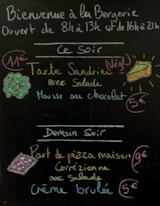 Bienvenue à la Bergerie
Ouvert de 8h à 13h et de 16h à 21h
Ce Soir
11€ Tarte Sandrine New
avec Salade
Mousse au chocolat 5€
Demain Soir
Part de pizza maison 9€
Corrézienne
avec Salade
Crème brulée 5€